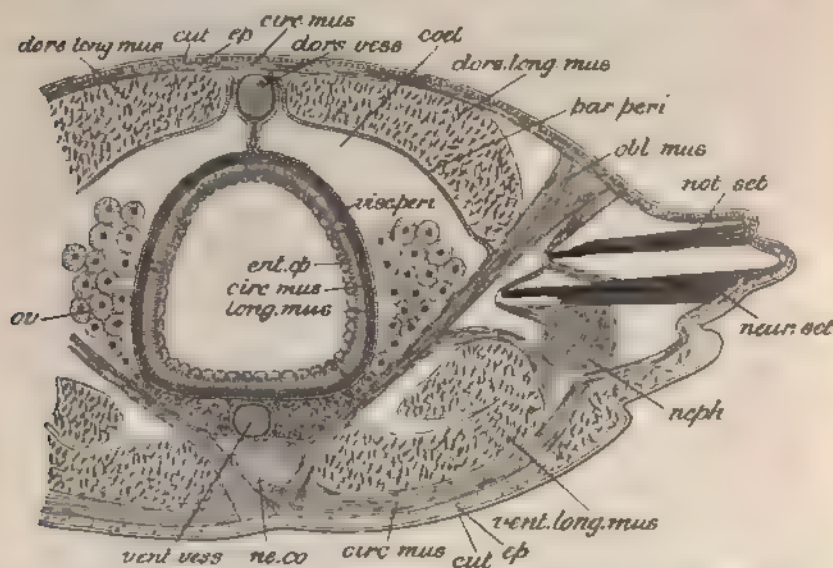 circ mus
dors long mus
cut
ep
dors vess
coel
dors.long.mus
par peri
obl mus
not set
visc peri
ent.ep
circ mus
long.mus
ov
neur.set
neph
vent.long.mus
vent vess
ne.co
circ mus
cut
ep